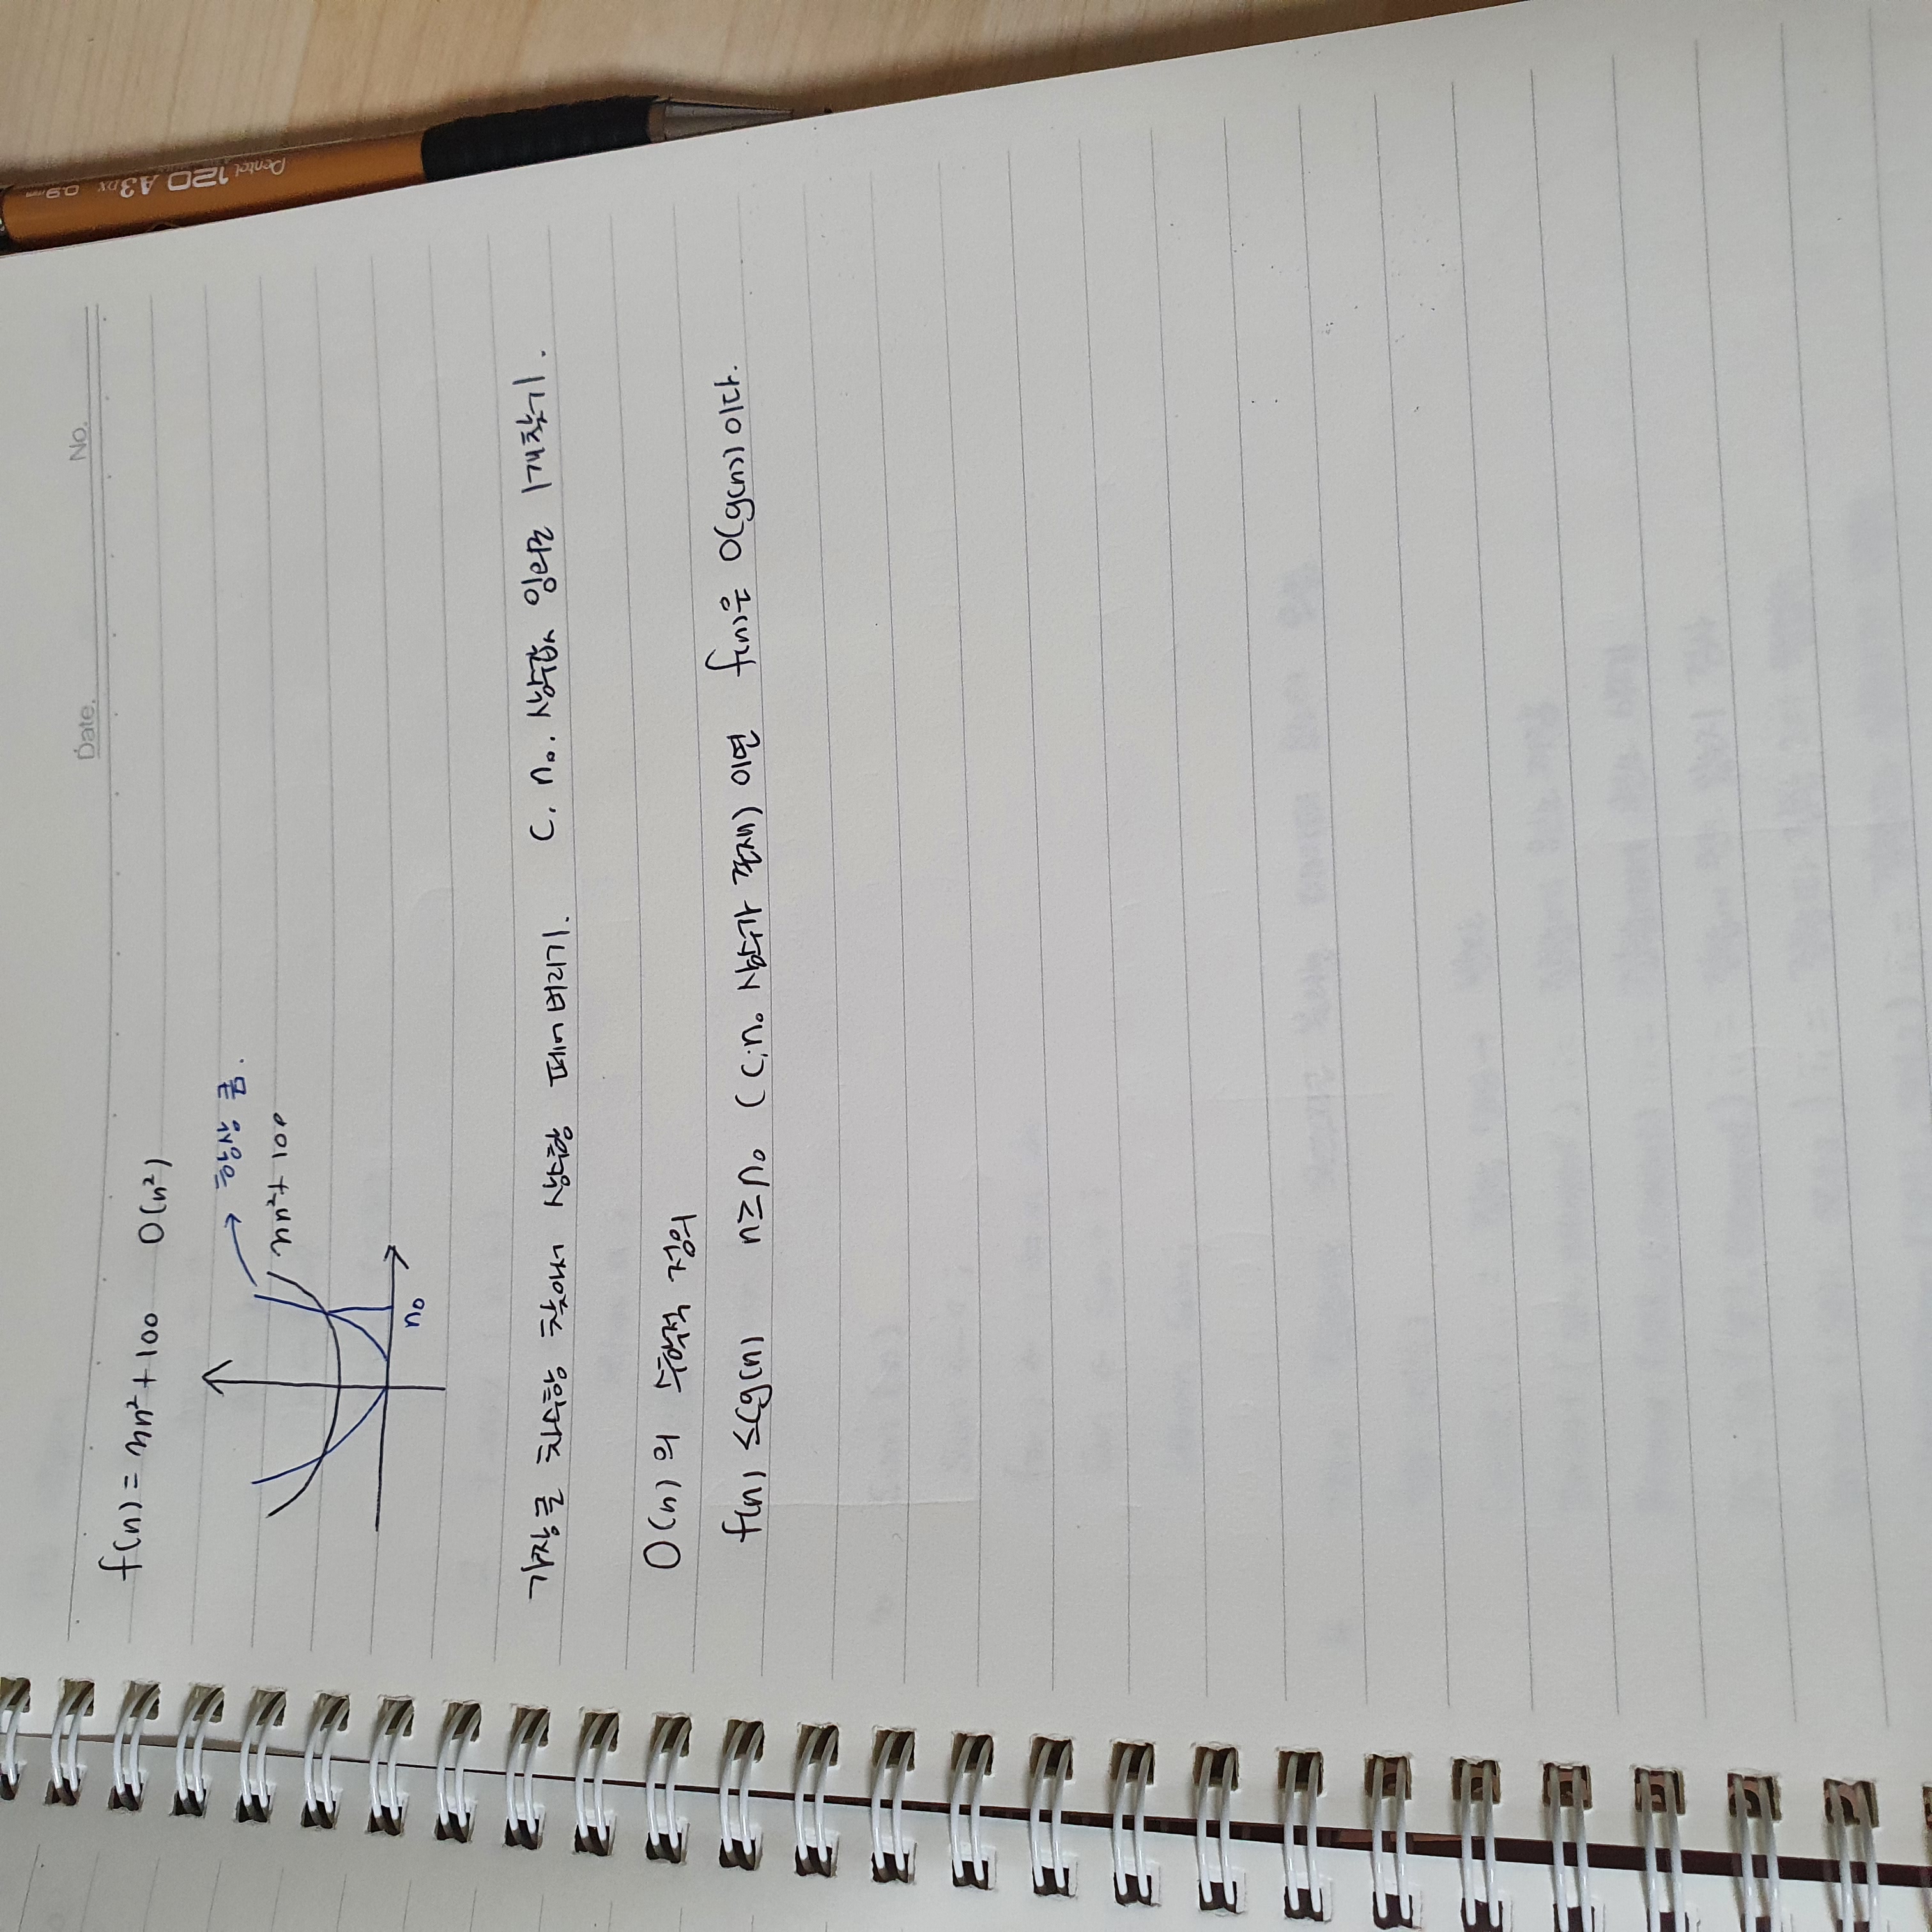 Date. No.
f(n) = n² + 100 O(n²)
항상 큼.
n² + 100
n₀
가장 큰 차수항 찾아서 상수항 떼어 버리기. C, n₀. 상수값 임의로 1개 찾기.
O(n) 의 수학적 정의
f(n) ≤ Cg(n) n ≥ n₀ (C, n₀ 상수가 존재) 이면 f(n)은 O(g(n)) 이다.
Pentel 120 A3DX 0.9mm